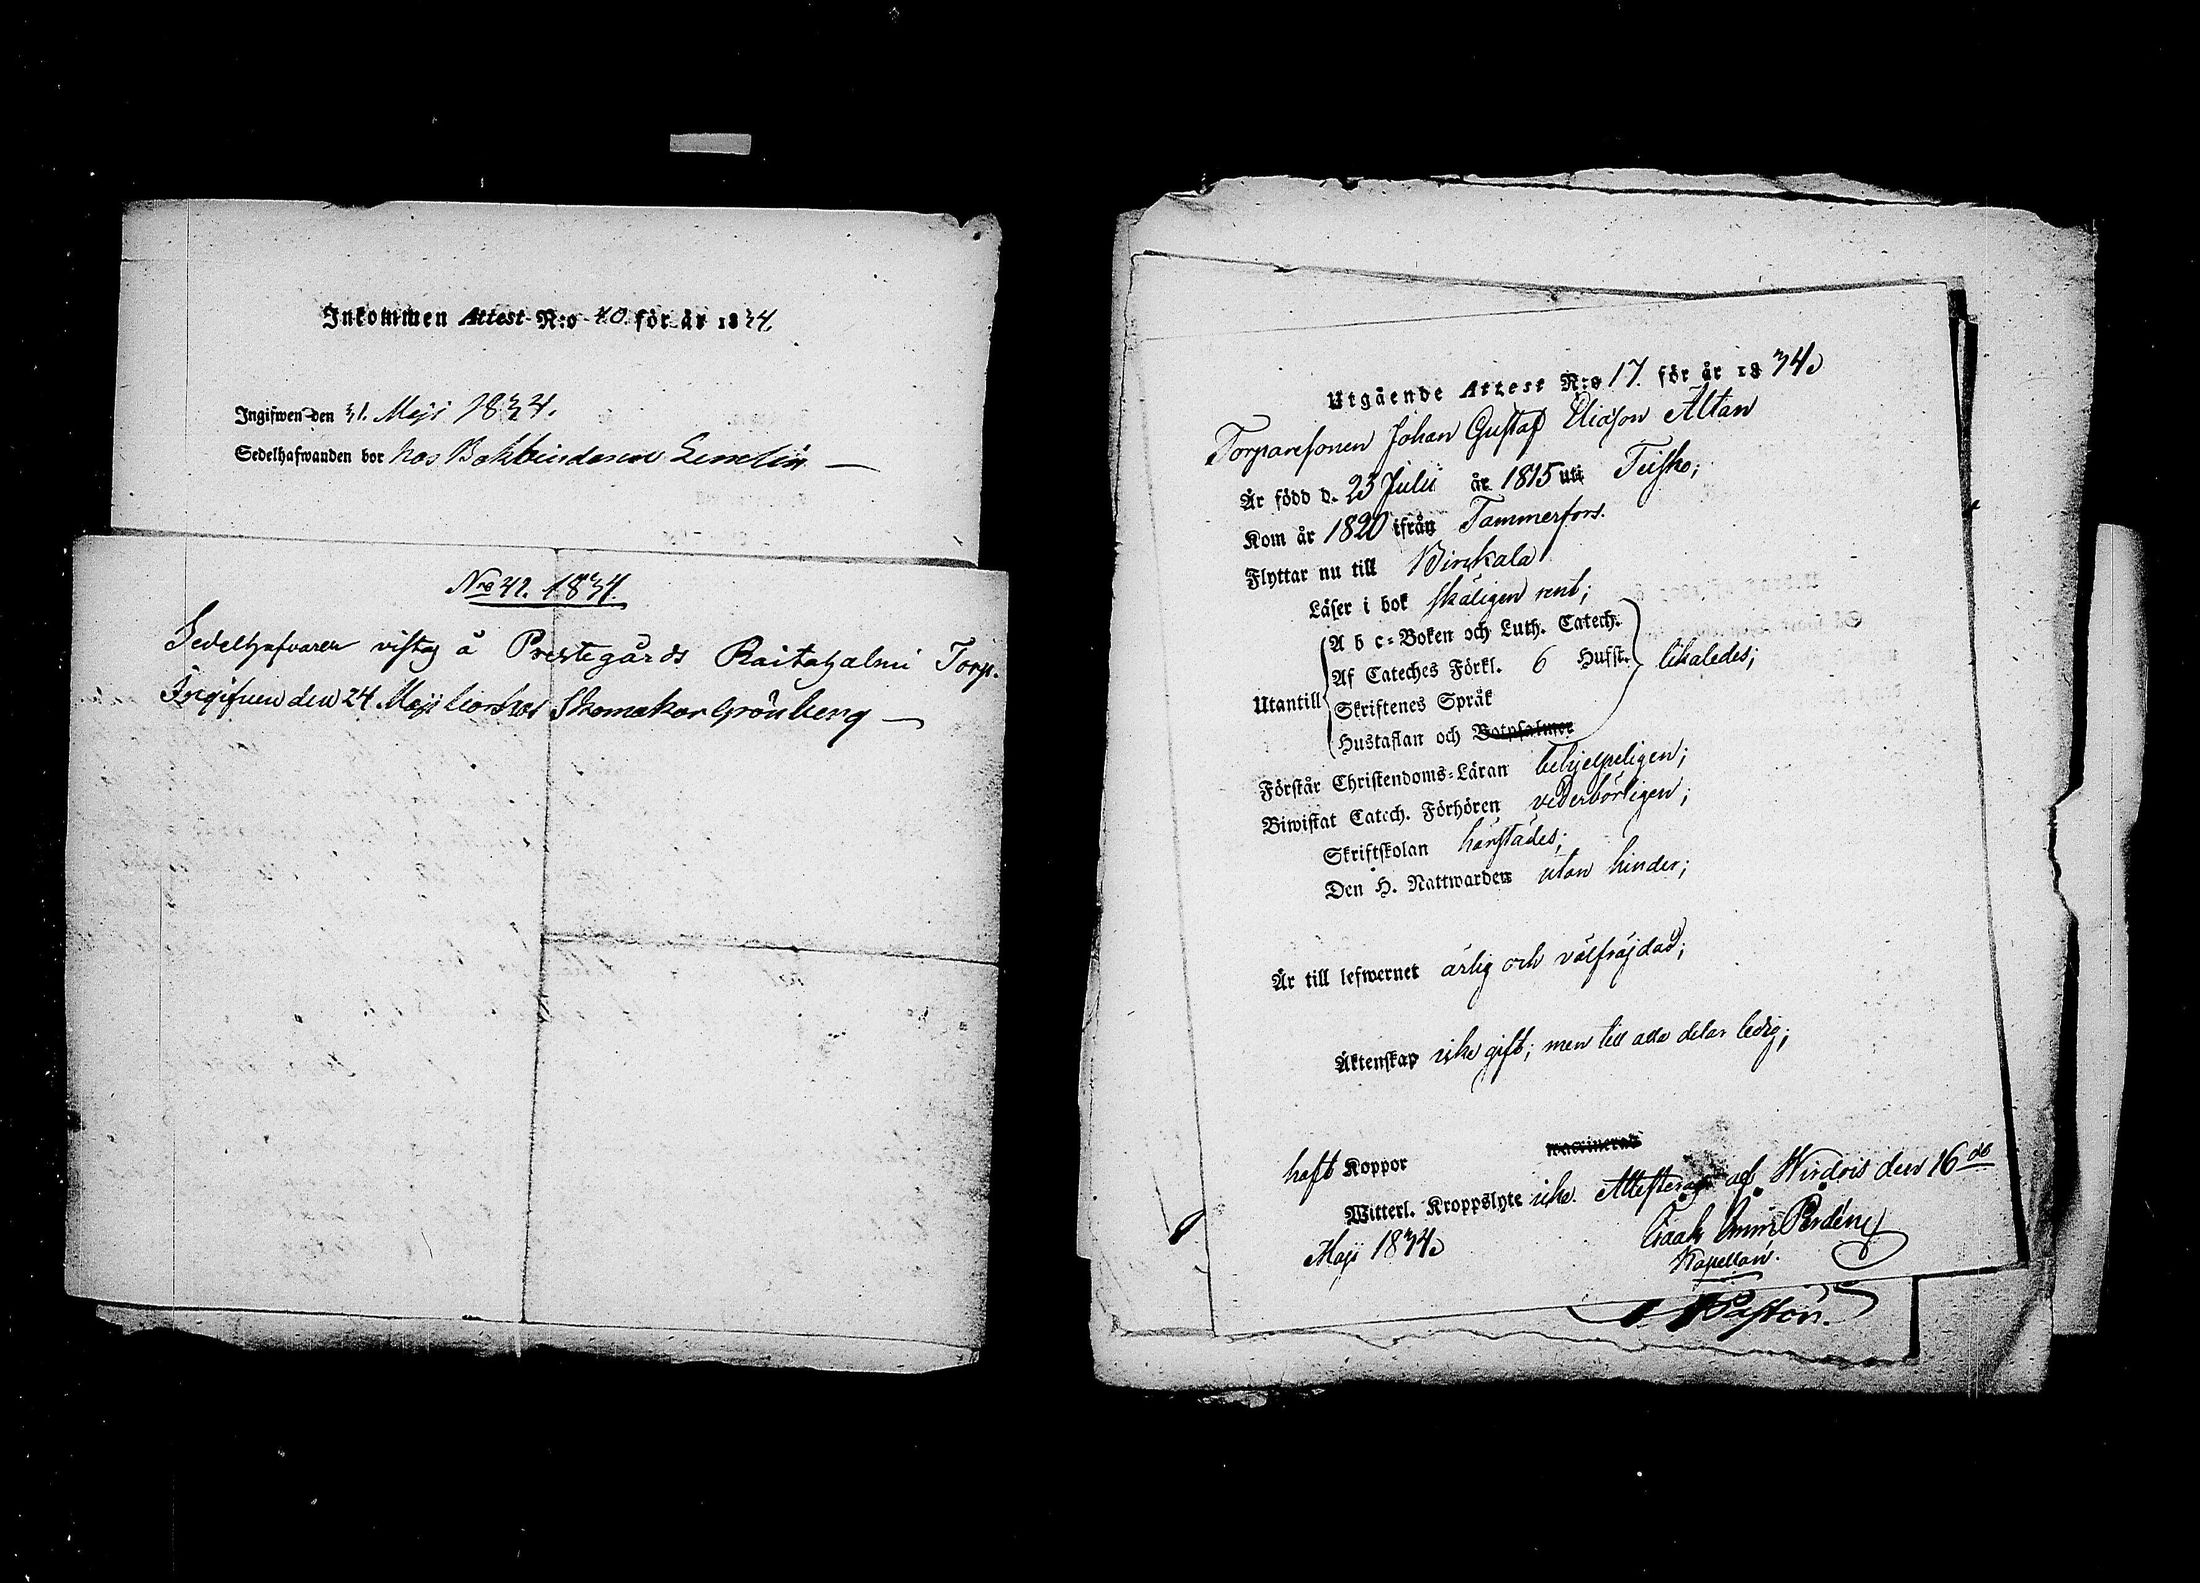 Inkommen Attest N:o 40 för år 1834.
Ingifwen den 31. Maji 1834.
Sedelhafwanden bor hos Bokbindaren
Nro 42. 1834.
Sedelhafvaren vistas å Prestegårds Raitahalmi Torp.
Ingifven den 24 Maji bor hos Skomakar Grönberg
Utgående Attest N:o 17. för år 1834.
Torparesonen Johan Gustaf Eliasson Altan
Är född d. 23 Julii år 1815 uti Teisko;
Kom år 1820 ifrån Tammerfors.
Flyttar nu till Birckala
Läser i bok skäligen rent;
A b c-Boken och Luth. Catech.
Af Cateches Förkl. 6 Hufst. likaledes;
Utantill Skriftenes Språk
Hustaflan och Botpsalmer
Förstår Christendoms-Läran behjelpeligen;
Biwistat Catech. Förhören vederbörligen;
Skriftskolan härstädes;
Den H. Nattwarden utan hinder;
Är till lefwernet ärlig och välfräjdad;
Äktenskap icke gift; men till alla delar ledig;
haft Koppor vaccinerad
Witterl. Kroppslyte icke. Attesterar af Wirdois den 16 de
Maji 1834.
Isaak Perdén
Kapellan.
Pastor.